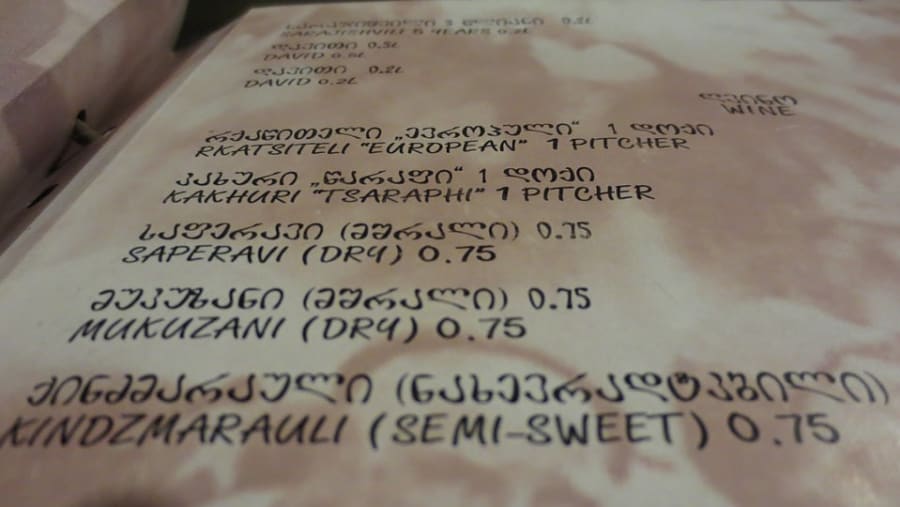 სარაჯიშვილი 5 წლიანი 0.2L
SARAJISHVILI 5 YEARS 0.2L
დავითი 0.5L
DAVID 0.5L
დავითი 0.2L
DAVID 0.2L
ღვინო
WINE
რქაწითელი „ევროპული“ 1 დოქი
RKATSITELI "EUROPEAN" 1 PITCHER
კახური „წარაფი“ 1 დოქი
KAKHURI "TSARAPHI" 1 PITCHER
საფერავი (მშრალი) 0.75
SAPERAVI (DRY) 0.75
მუკუზანი (მშრალი) 0.75
MUKUZANI (DRY) 0.75
ქინძმარაული (ნახევრადტკბილი)
KINDZMARAULI (SEMI-SWEET) 0.75